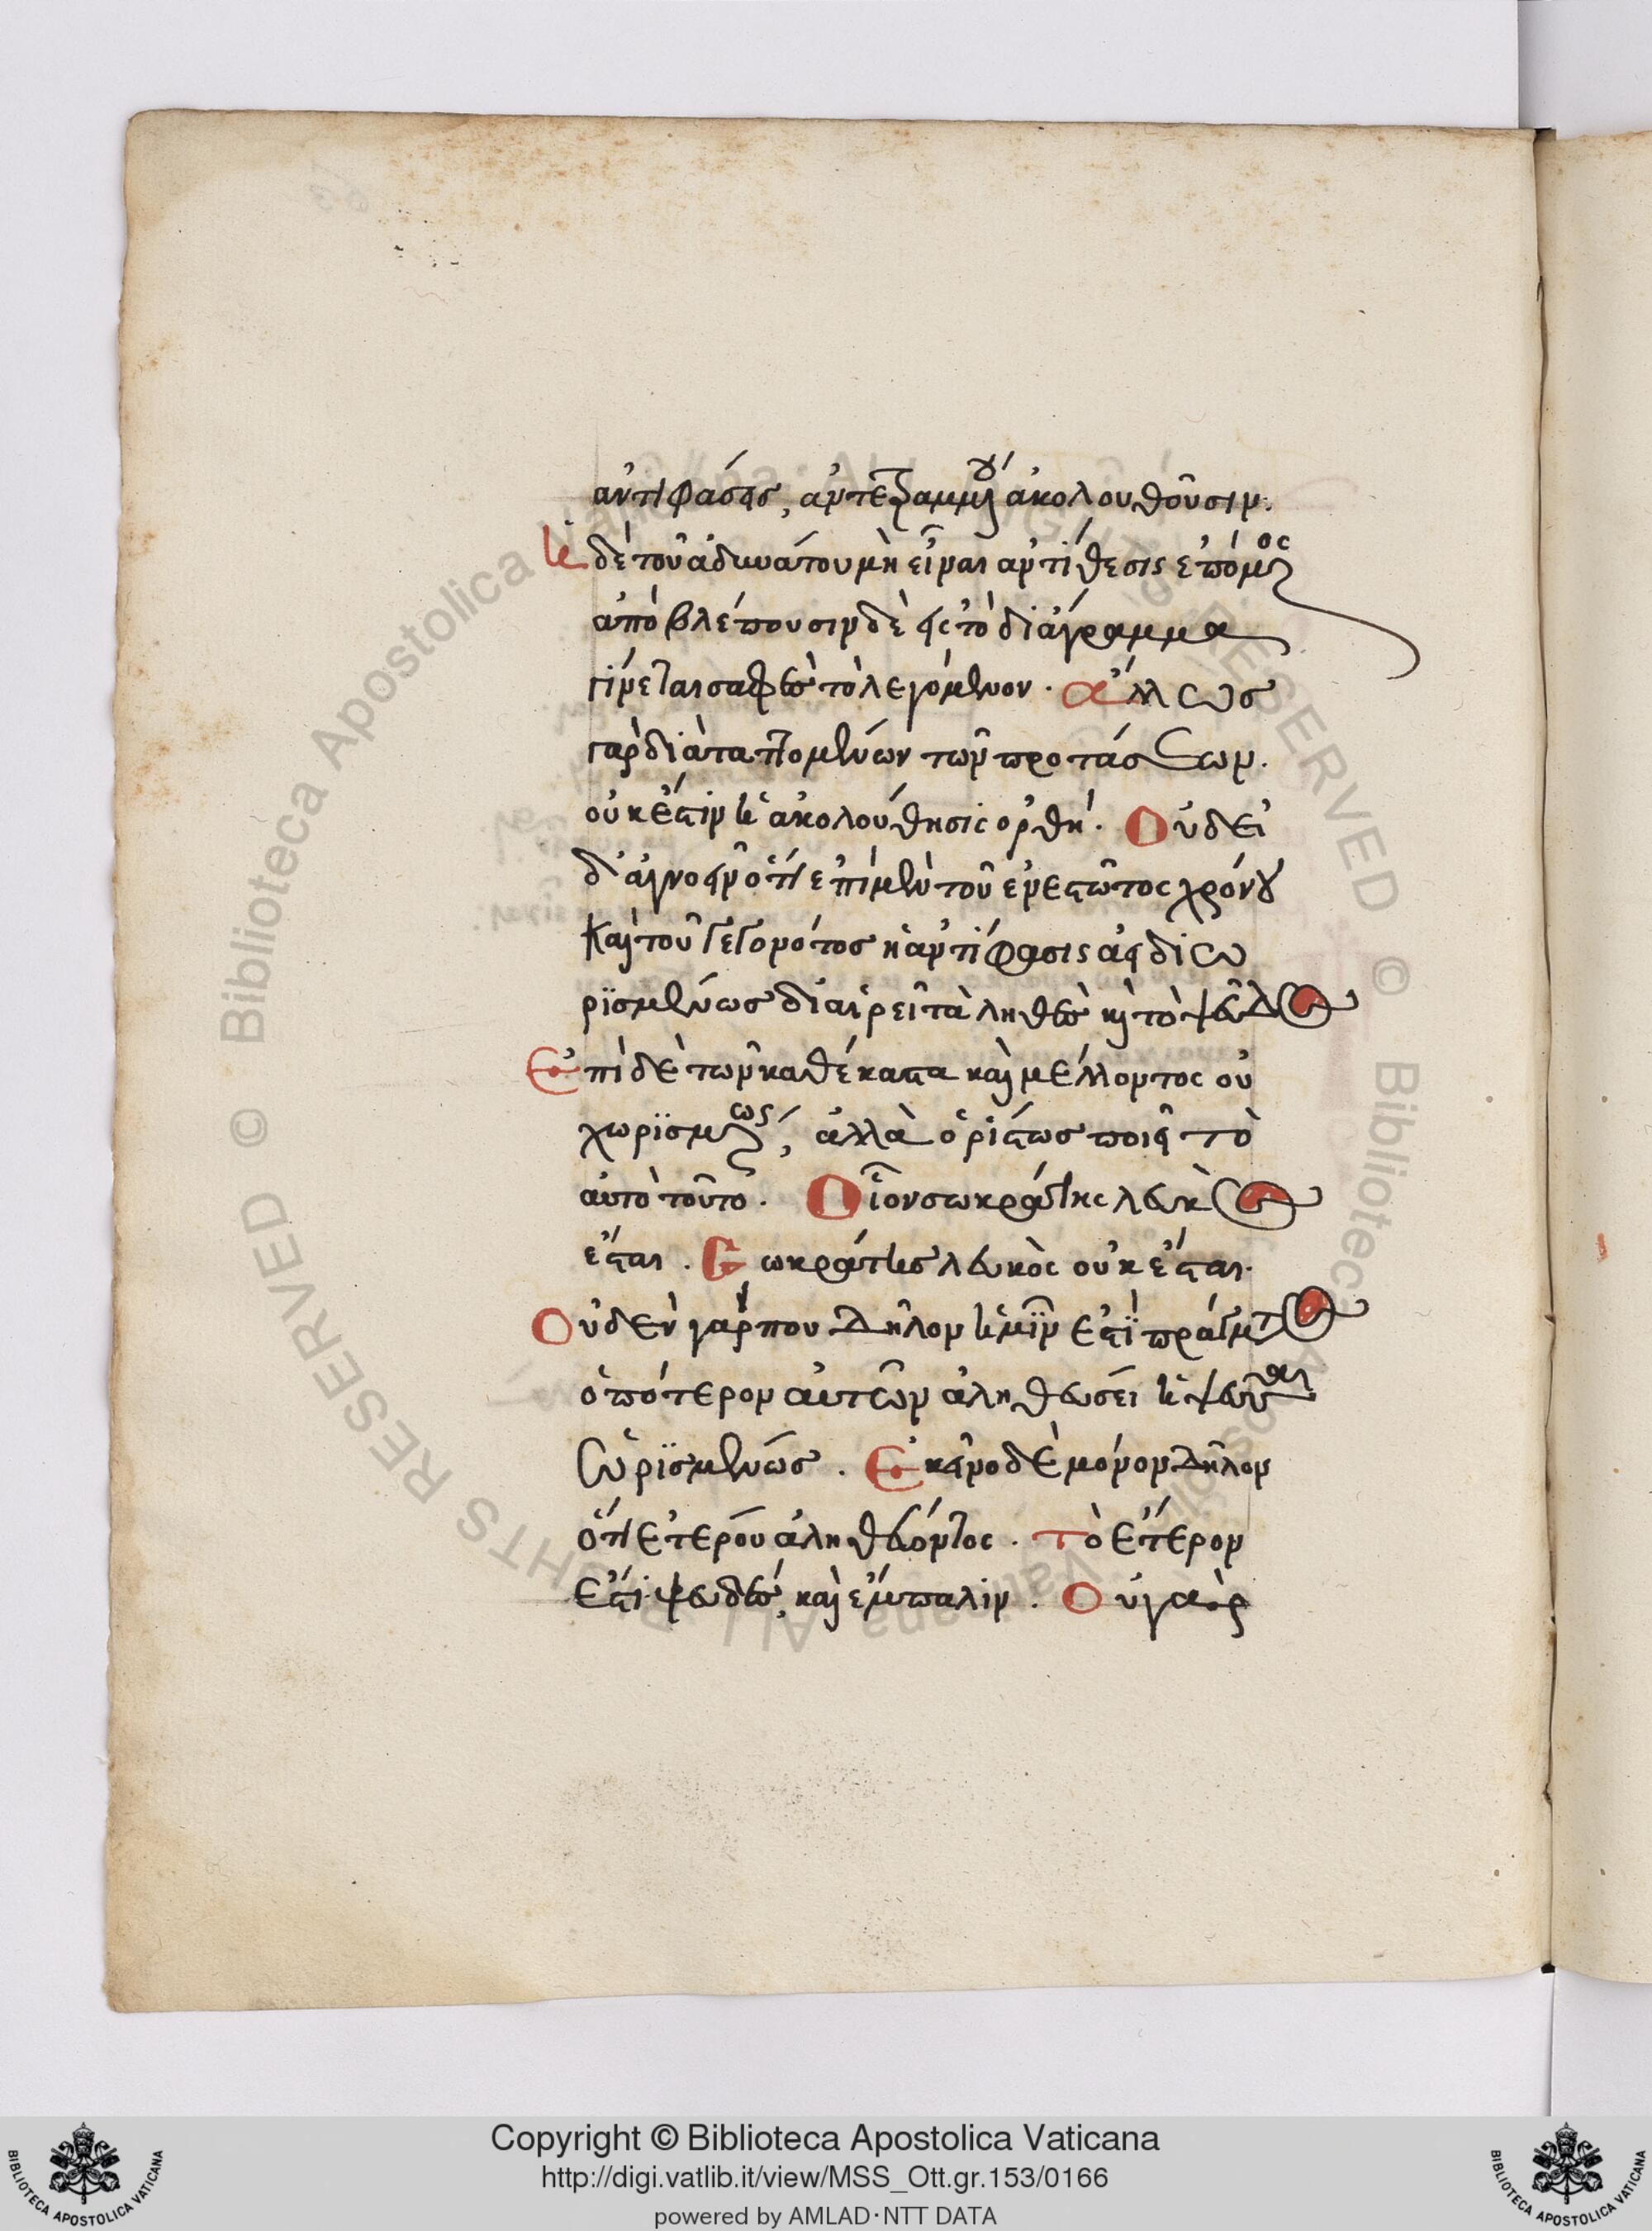 ἀντιφάσεις, ἀντεζαμμένου ἀκολουθοῦσιν.
ἡ δὲ τοῦ ἀδυνάτου μὴ εἶναι ἀντίθεσις ἑπόμενος
ἀποβλέπουσιν δὲ εἰς τὸ διάγραμμα
γίνεται σαφὲς τὸ λεγόμενον. ἄλλως
γὰρ διαταττομένων τῶν προτάσεων.
οὐκ ἔστιν ἡ ἀκολούθησις ὀρθή. Οὐ δεῖ
δ' ἀγνοεῖν ὅτι ἐπὶ μὲν τοῦ ἐνεστῶτος χρόνου
καὶ τοῦ γεγονότος ἡ ἀντίφασις ἀεὶ διω
ρϊσμένως διαιρεῖ τἀληθὲς καὶ τὸ ψεῦδος
Ἐπὶ δὲ τῶν καθέκαστα καὶ μέλλοντος οὐ
χωρϊσμένως, ἀλλὰ ὁρίστως ποιεῖ τὸ
αὐτὸ τοῦτο. Οἷον σωκράτης λευκὸς
ἔσται. Σωκράτης λευκὸς οὐκ ἔσται.
Οὐδὲν γάρ που δῆλον ἡμῖν ἐστϊ πράγματος
ὁπότερον αὐτῶν ἀληθεύσει ἢ ψεύδεται
ὡρϊσμένως. Ἐκεῖνο δὲ μόνον δῆλον
ὅτι ἑτέρου ἀληθεύοντος. τὸ ἕτερον
ἐστὶ ψευδές, καὶ ἔμπαλιν. Οὐ γὰρ
Copyright © Biblioteca Apostolica Vaticana
http://digi.vatlib.it/view/MSS_Ott.gr.153/0166
powered by AMLAD·NTT DATA